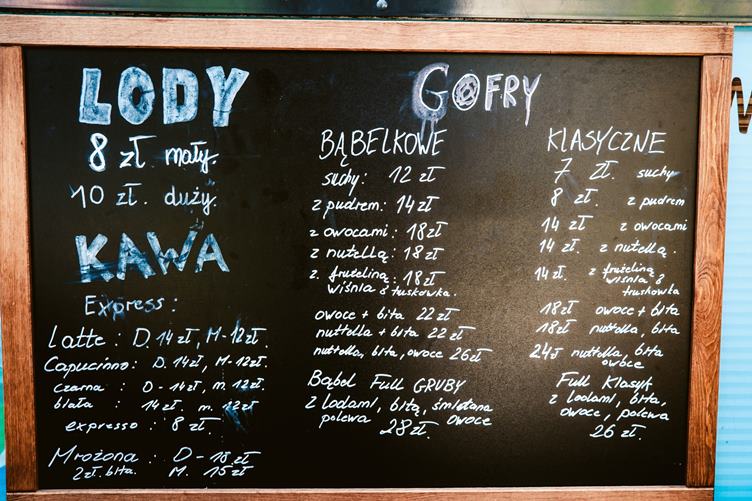 LODY
8 zł mały.
10 zł. duży.
KAWA
Express:
Latte: D. 14 zł, M-12 zł.
Capucinno: D. 14 zł, M-12 zł.
czarna : D-14 zł, m. 12 zł.
biała : 14 zł. m. 12 zł
expresso: 8 zł.
Mrożona : D-18 zł
2 zł. bita. M. 15 zł
GOFRY
BĄBELKOWE
suchy: 12 zł
z pudrem: 14 zł
z owocami: 18 zł
z nutellą: 18 zł
z. frużeliną: 18 zł
wiśnia & truskawka.
owoce + bita 22 zł
nuttella + bita 22 zł
nuttella, bita, owoce 26 zł
Bąbel Full GRUBY
z Lodami, bitą, śmietana
polewa owoce
28 zł.
KLASYCZNE
7 zł. suchy
8 zł. z pudrem
14 zł z owocami
14 zł. z nutellą.
14 zł. z frużeliną
wiśnia &
truskawka
18 zł owoc + bita
18 zł nuttella, bita
24 zł nuttella, bita
owoce
Full Klasyk
z Lodami, bita,
owoce, polewa
26 zł.